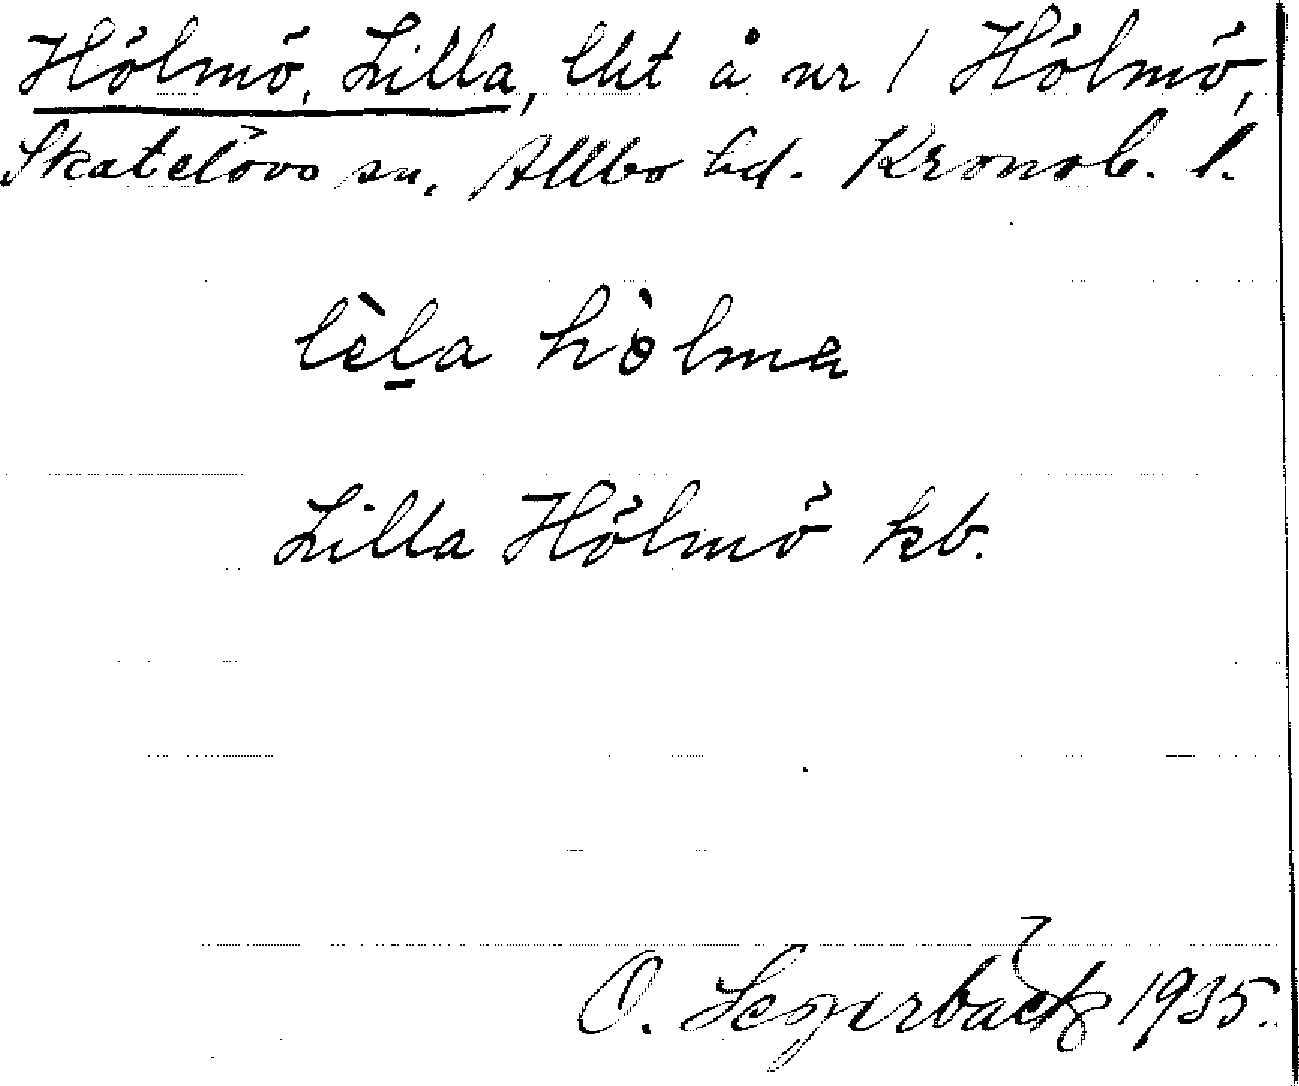 Hölmö, Lilla, lht å nr 1 Hölmö,
Skatelövs sn, Allbo hd. Kronob. l.
lèḻa hòlma
Lilla Hölmö kb.
O. Segerbäck 1935.